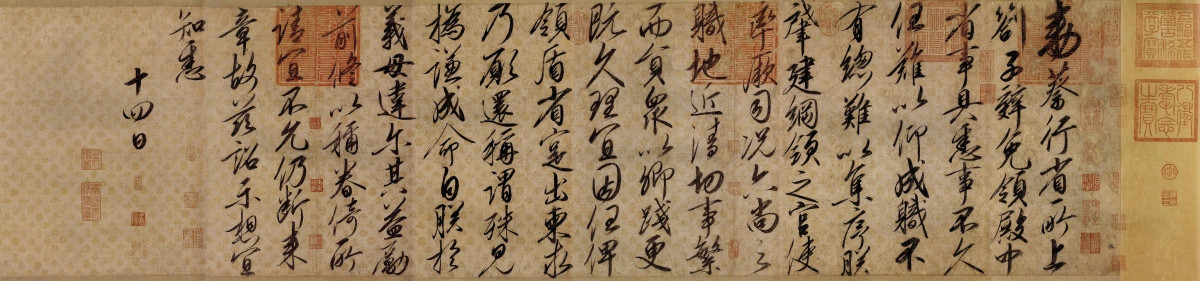 敕蔡行省所上
劄子辭免領殿中
省事具悉事不久
任難以仰成職不
有總難以集序朕
肇建綱領之官使
率厥司況六尚之
職地近清切事繁
而員衆以卿踐更
既久理宜因任俾
領盾省寔出柬求
乃願還稱謂殊見
撝謙成命自朕於
義毋違爾其益勵
前修以稱眷倚所
請宜不允仍斷來
章故茲詔示想宜
知悉
十四日
八徵耄念之寶